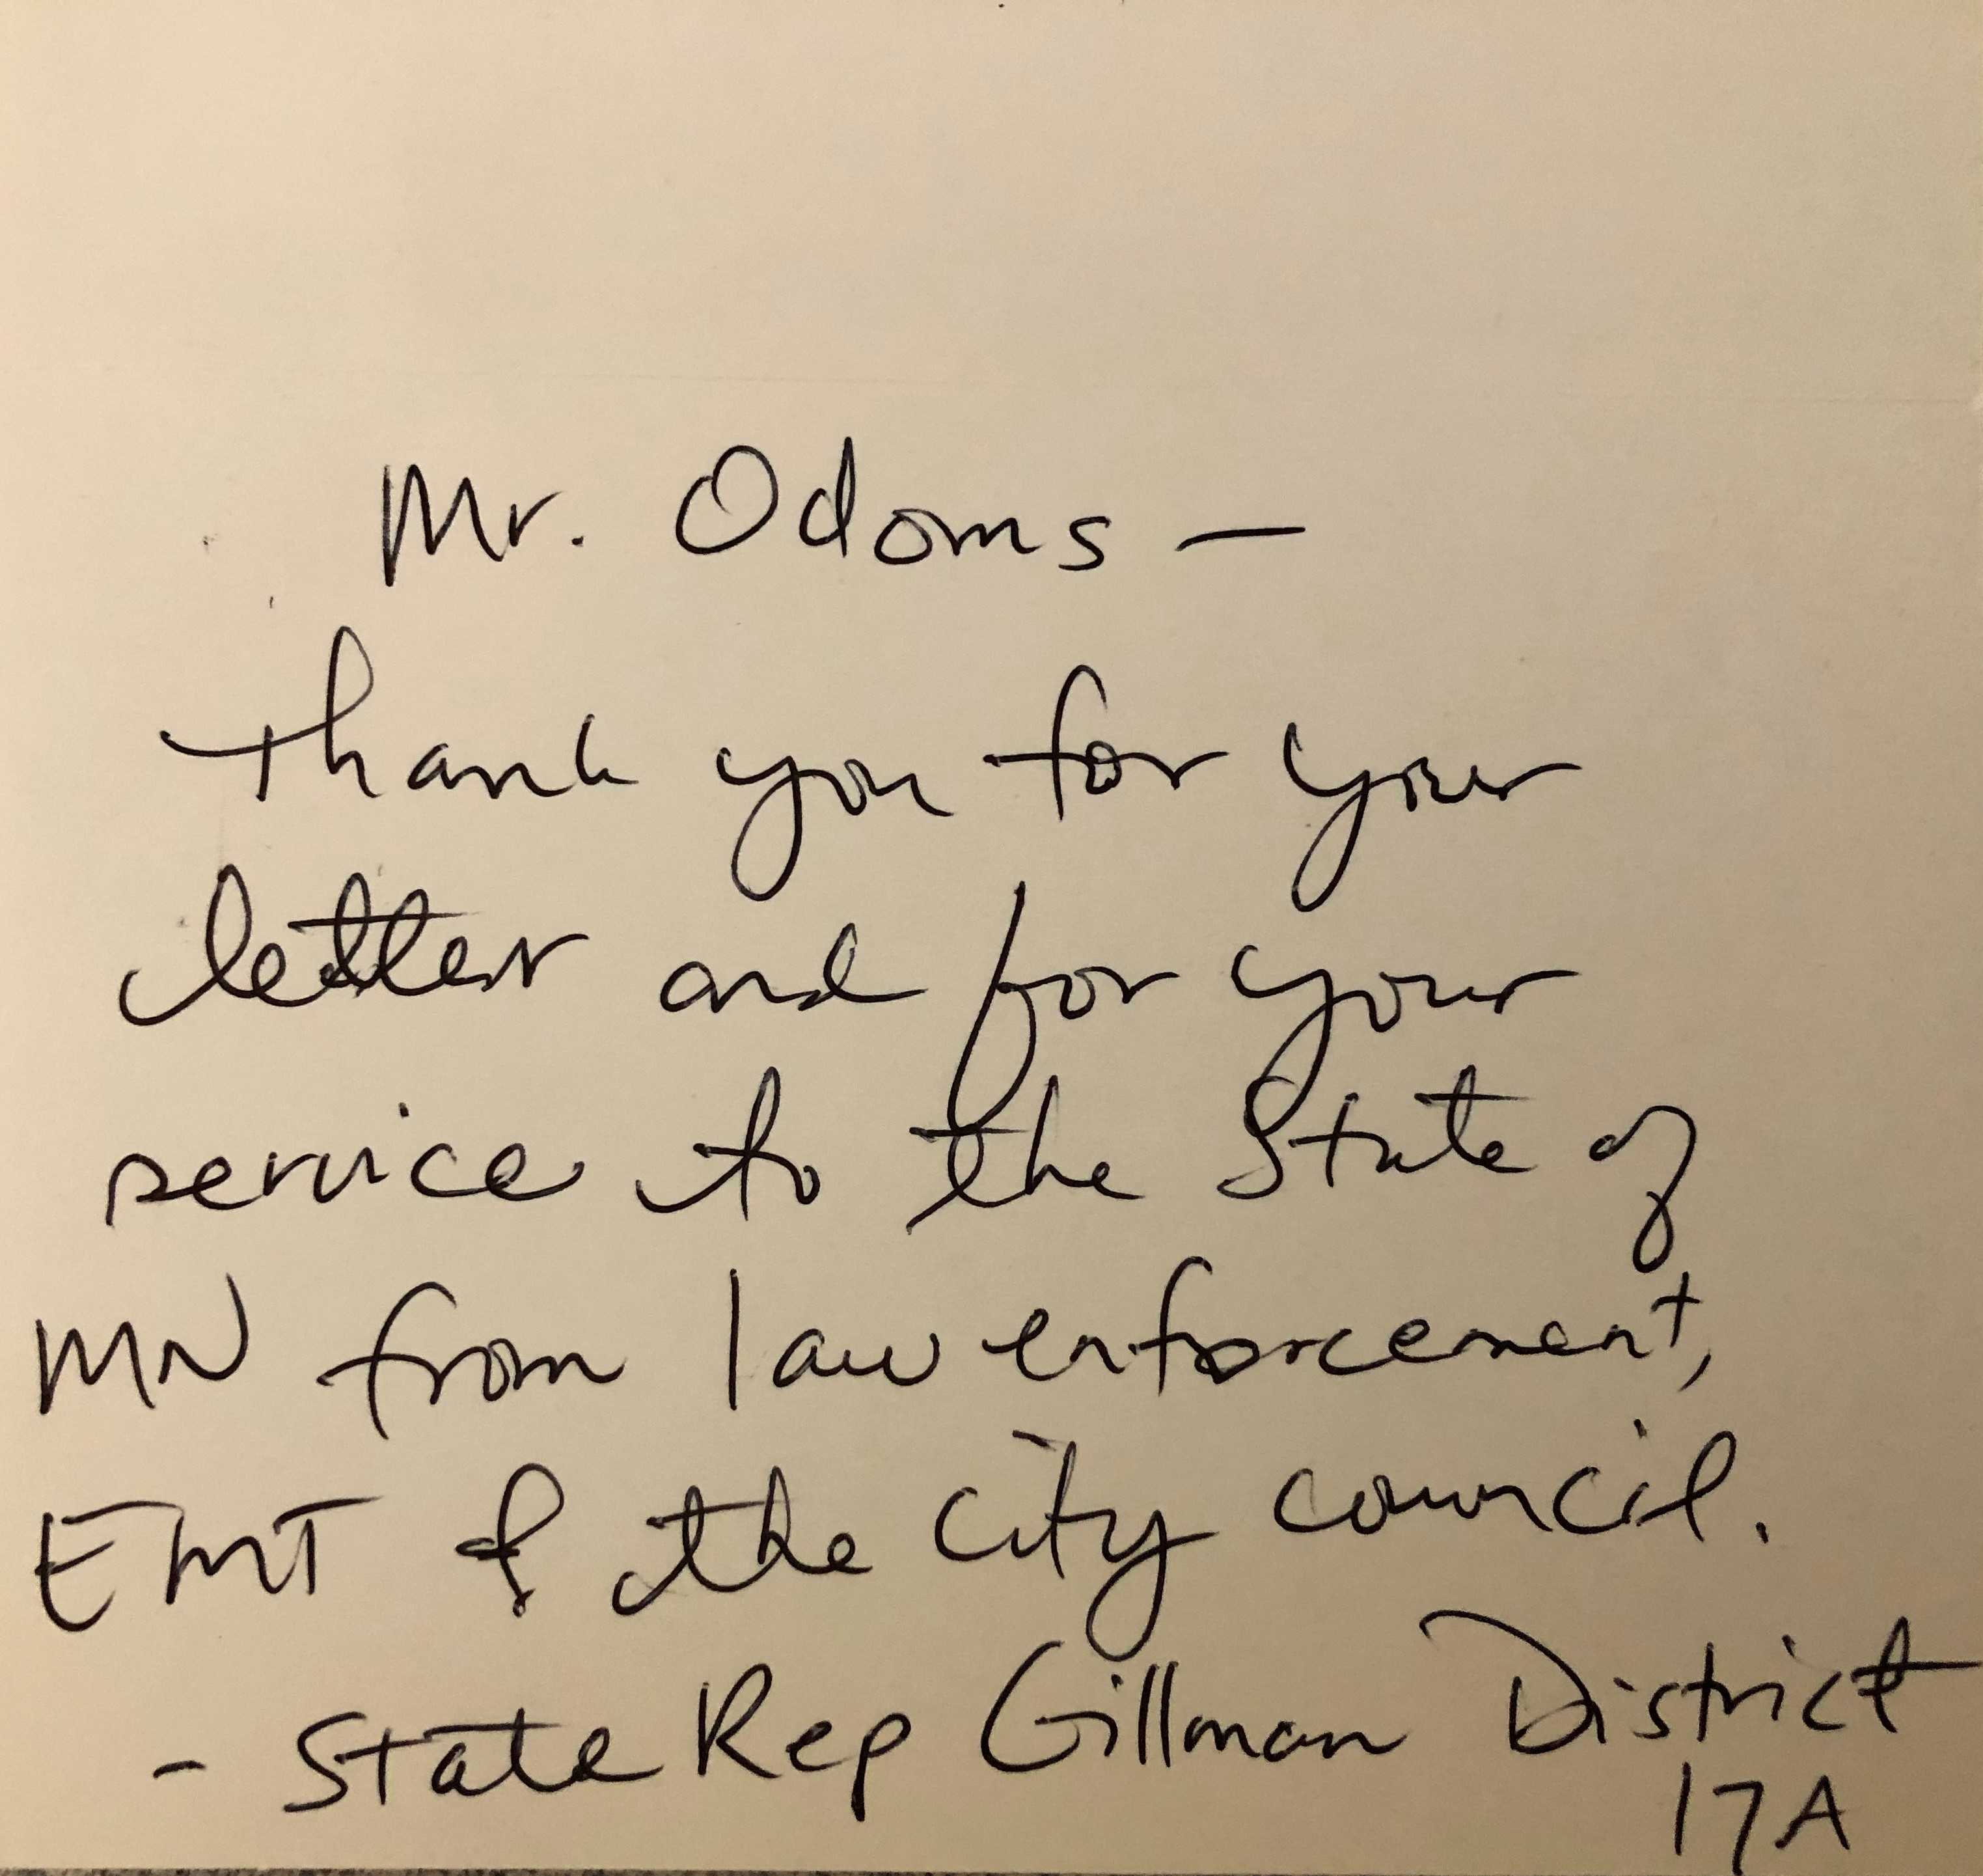 Mr. Odoms —
Thank you for your
letter and for your
service to the State of
MN from law enforcement,
EMT & the city council.
- State Rep Gillman District
17A